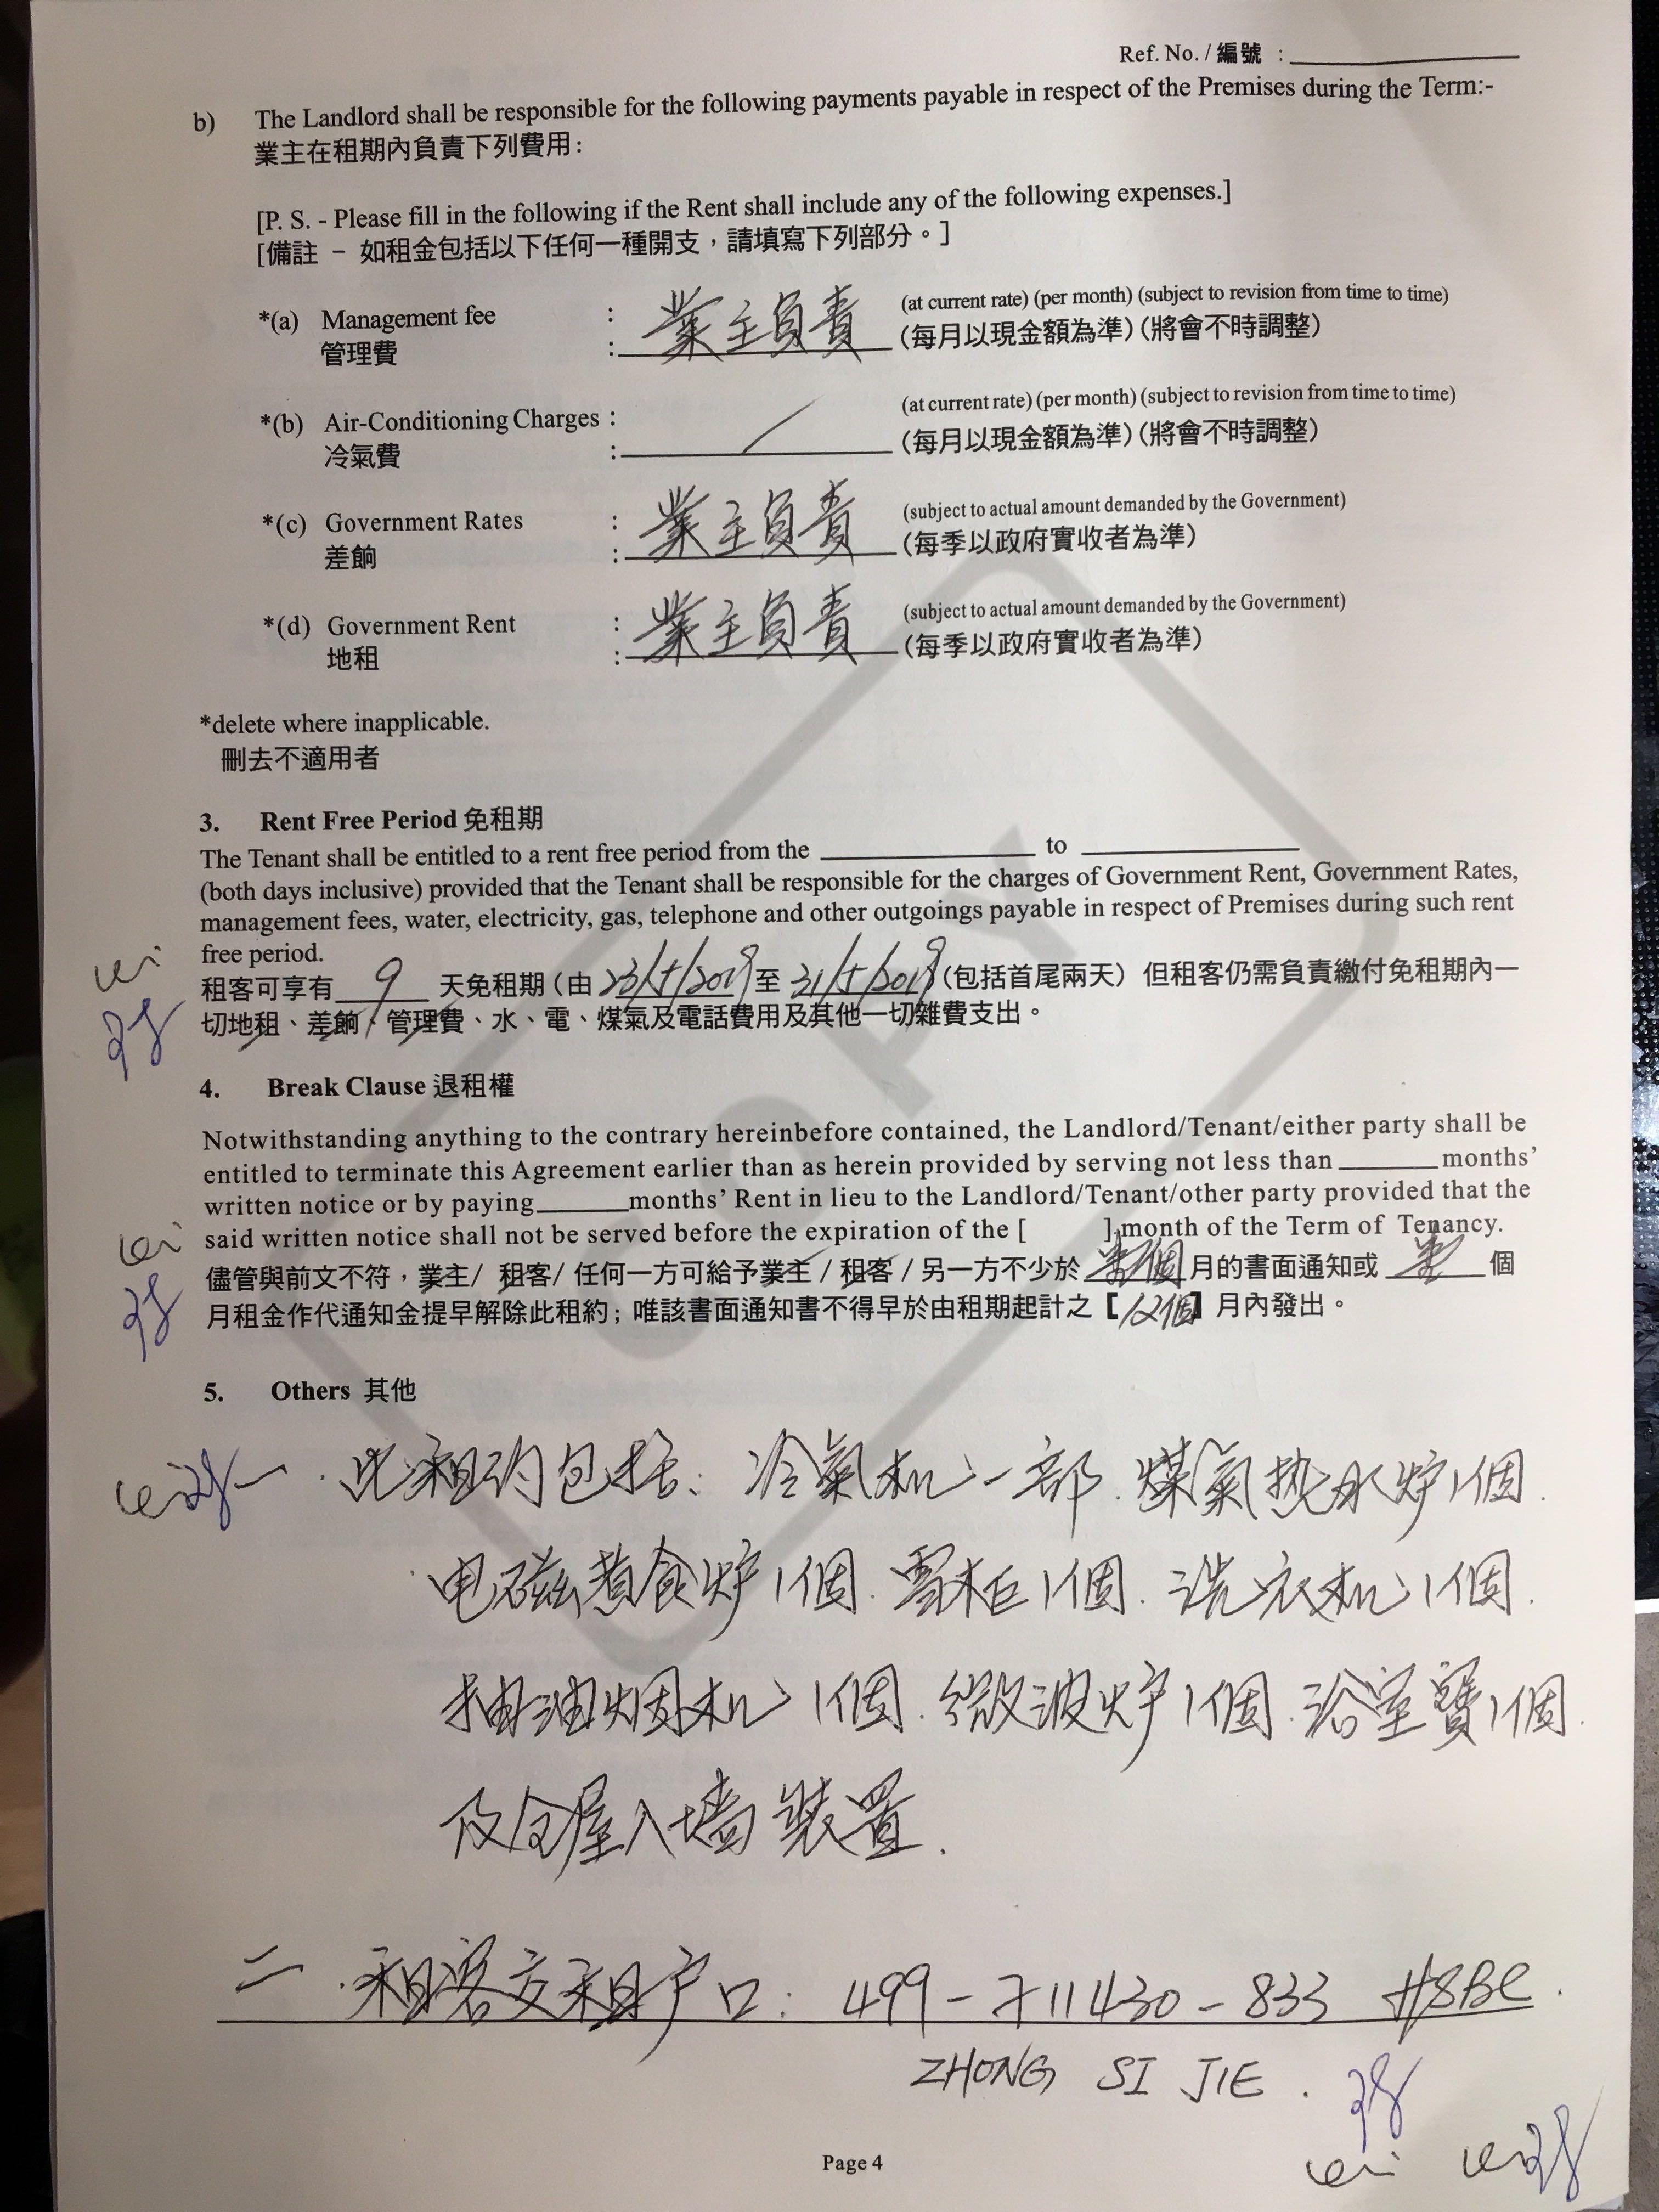 Ref. No. / 編號 :
b) The Landlord shall be responsible for the following payments payable in respect of the Premises during the Term:-
業主在租期內負責下列費用:
[P. S. - Please fill in the following if the Rent shall include any of the following expenses.]
[備註 – 如租金包括以下任何一種開支，請填寫下列部分。]
*(a) Management fee : (at current rate) (per month) (subject to revision from time to time)
管理費 : 業主負責 (每月以現金額為準) (將會不時調整)
*(b) Air-Conditioning Charges : (at current rate) (per month) (subject to revision from time to time)
冷氣費 : / (每月以現金額為準) (將會不時調整)
*(c) Government Rates : (subject to actual amount demanded by the Government)
差餉 : 業主負責 (每季以政府實收者為準)
*(d) Government Rent : (subject to actual amount demanded by the Government)
地租 : 業主負責 (每季以政府實收者為準)
*delete where inapplicable.
刪去不適用者
3. Rent Free Period 免租期
The Tenant shall be entitled to a rent free period from the ____ to ____
(both days inclusive) provided that the Tenant shall be responsible for the charges of Government Rent, Government Rates,
management fees, water, electricity, gas, telephone and other outgoings payable in respect of Premises during such rent
free period.
租客可享有 9 天免租期 (由 23/5/2018 至 31/5/2018 (包括首尾兩天) 但租客仍需負責繳付免租期內一
切地租、差餉、管理費、水、電、煤氣及電話費用及其他一切雜費支出。
4. Break Clause 退租權
Notwithstanding anything to the contrary hereinbefore contained, the Landlord/Tenant/either party shall be
entitled to terminate this Agreement earlier than as herein provided by serving not less than ____ months'
written notice or by paying ____ months' Rent in lieu to the Landlord/Tenant/other party provided that the
said written notice shall not be served before the expiration of the [ ] month of the Term of Tenancy.
儘管與前文不符，業主/ 租客/ 任何一方可給予業主 / 租客 / 另一方不少於 個 月的書面通知或 個
月租金作代通知金提早解除此租約; 唯該書面通知書不得早於由租期起計之【12個】月內發出。
5. Others 其他
一. 此租約包括: 冷氣机一部. 煤氣热水炉1個.
电磁煮食炉1個. 雪柜1個. 洗衣机1個.
抽油烟机1個. 微波炉1個. 浴室寶1個.
及全屋入墙裝置.
二. 租客交租户口: 499-711430-833 HSBC.
ZHONG SI JIE.
COPY
Page 4